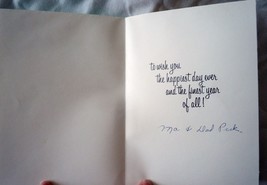 to wish you
the happiest day ever
and the finest year
of all!
Mom & Dad Park